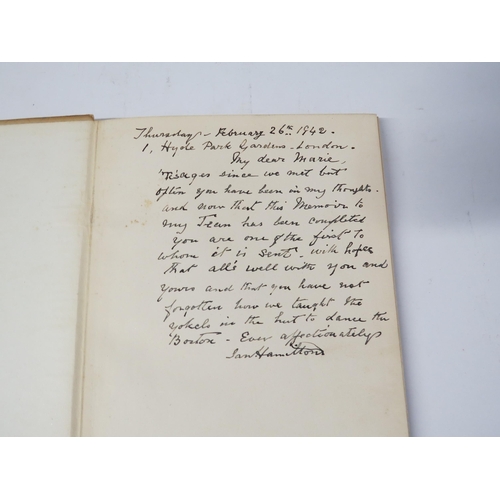 Thursday - February 26th. 1942.
1, Hyde Park Gardens - London.
My dear Marie,
'Tis ages since we met but
often you have been in my thoughts -
and now that this Memoir to
my Jean has been completed
you are one of the first to
whom it is sent - with hopes
that all's well with you and
yours and that you have not
forgotten how we taught the
yokels in the hut to dance the
Boston - Ever affectionately
Ian Hamilton